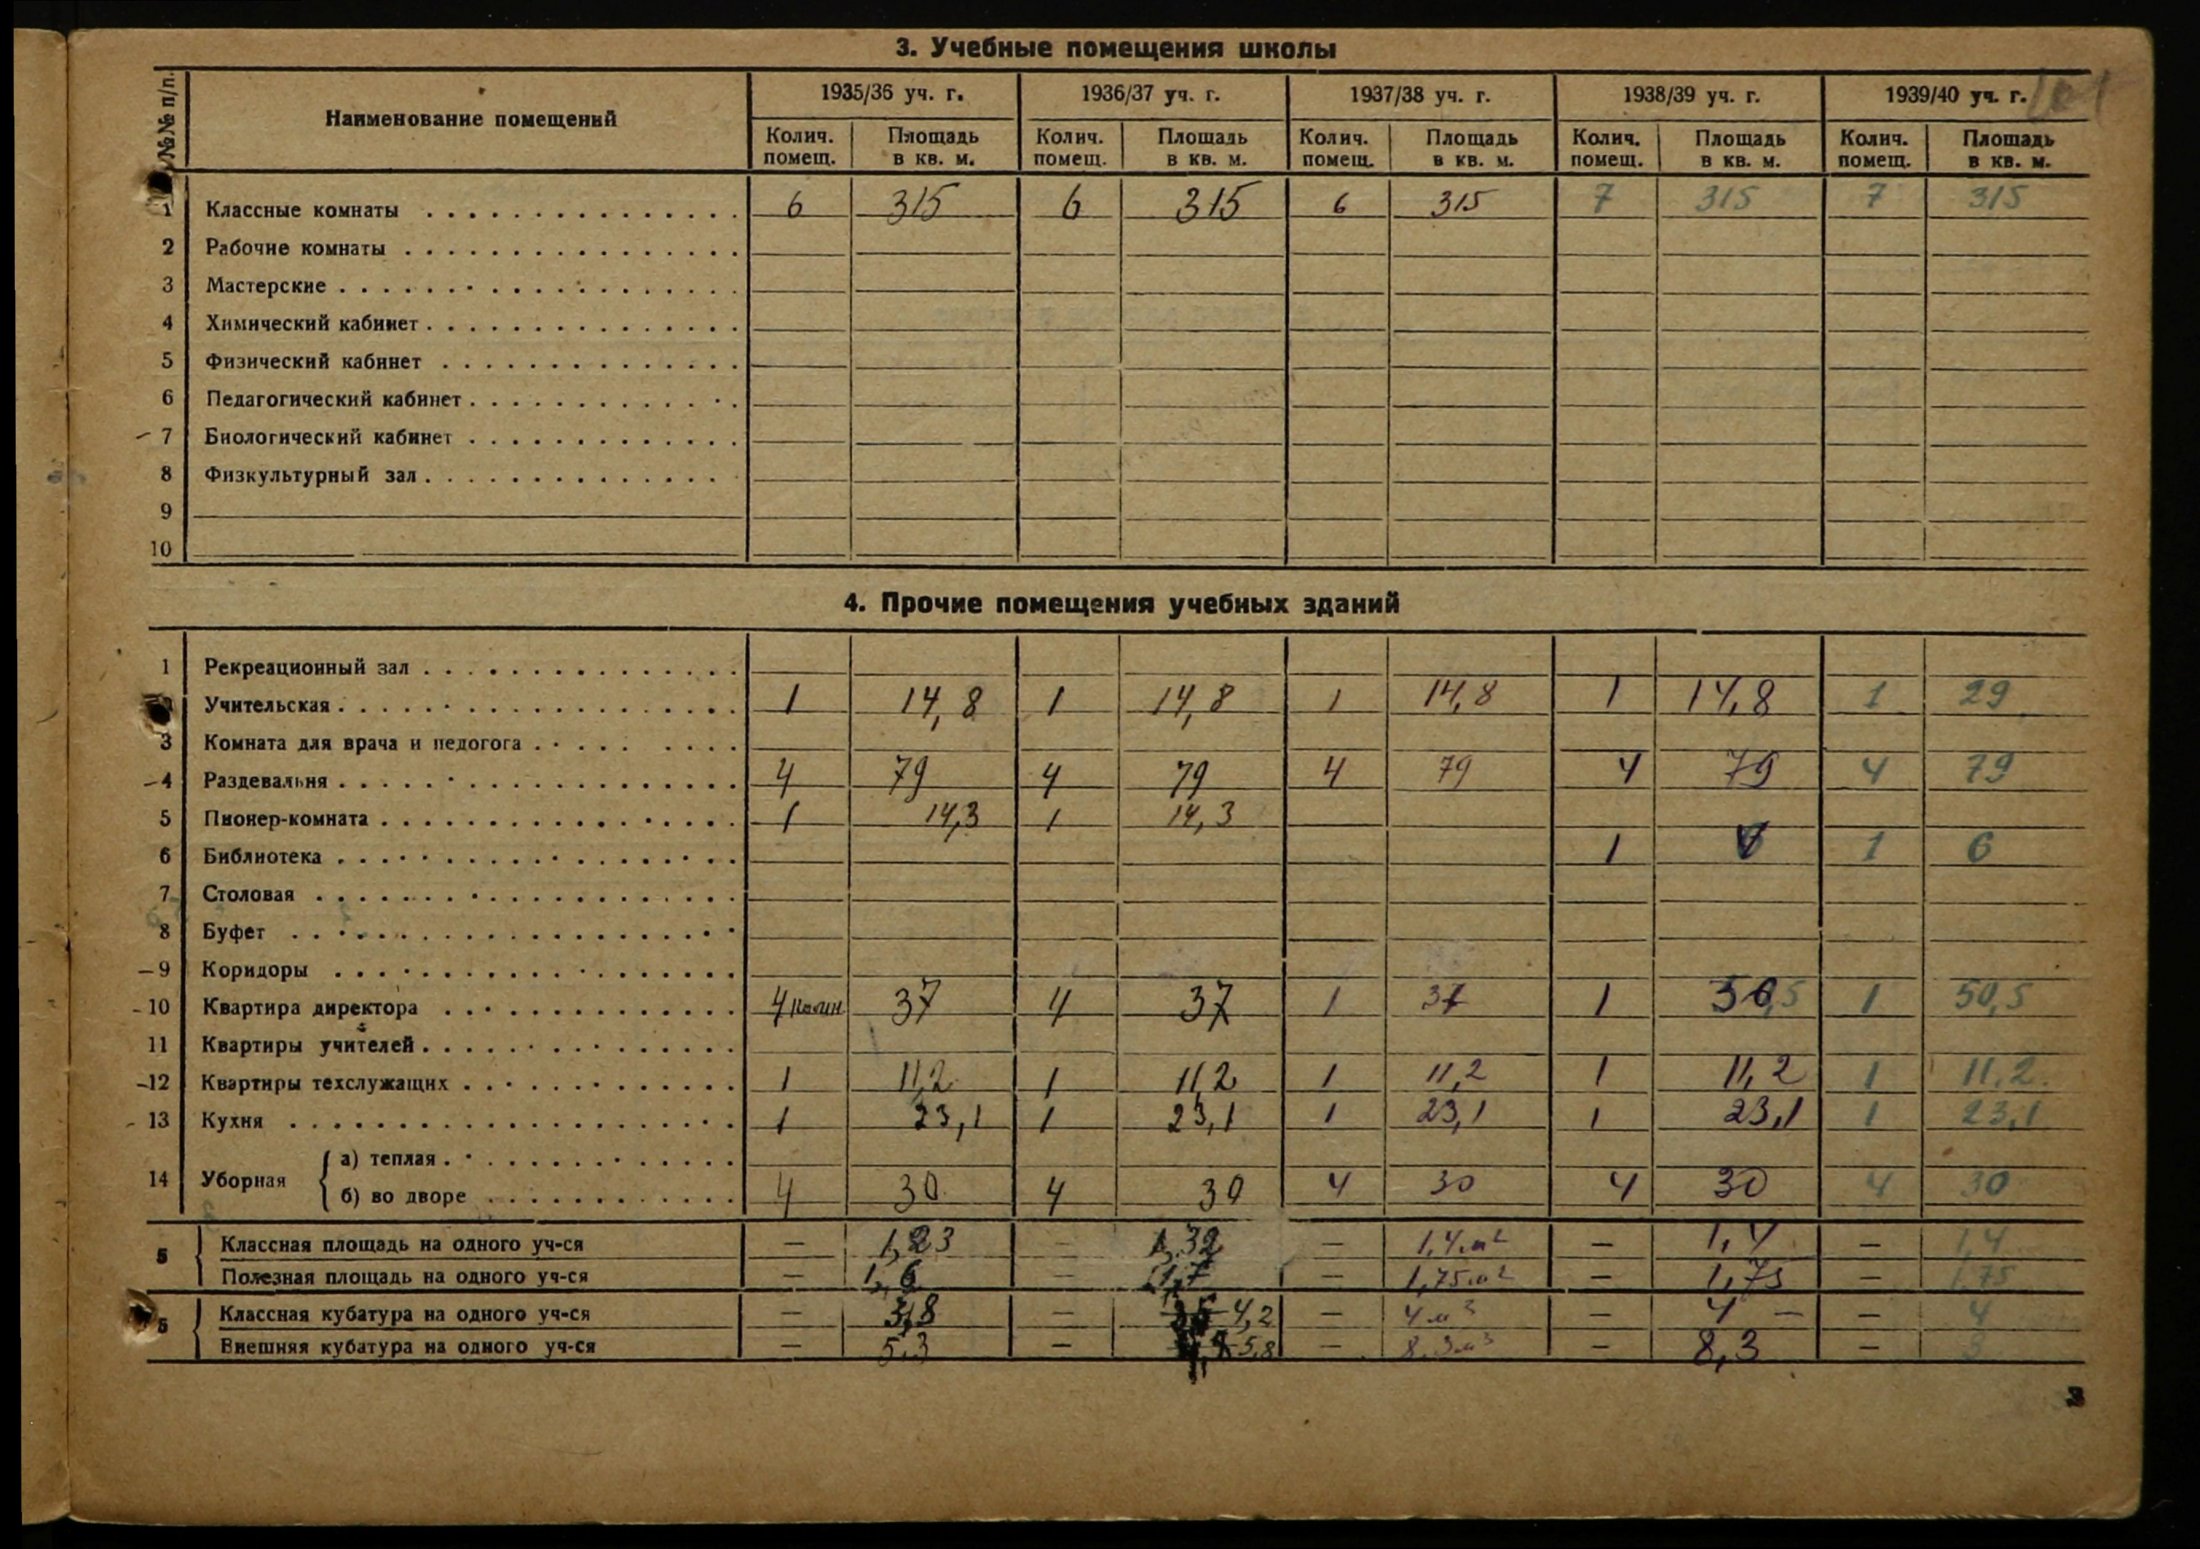 3. Учебные помещения школы
№№ п/п. Наименование помещений 1935/36 уч. г. 1936/37 уч. г. 1937/38 уч. г. 1938/39 уч. г. 1939/40 уч. г.
Колич. помещ. Площадь в кв. м. Колич. помещ. Площадь в кв. м. Колич. помещ. Площадь в кв. м. Колич. помещ. Площадь в кв. м. Колич. помещ. Площадь в кв. м.
1 Классные комнаты 6 315 6 315 6 315 7 315 7 315
2 Рабочие комнаты
3 Мастерские
4 Химический кабинет
5 Физический кабинет
6 Педагогический кабинет
7 Биологический кабинет
8 Физкультурный зал
9
10
4. Прочие помещения учебных зданий
1 Рекреационный зал
Учительская 1 14,8 1 14,8 1 14,8 1 14,8 1 29
3 Комната для врача и педогога
4 Раздевальня 4 79 4 79 4 79 4 79 4 79
5 Пионер-комната 1 14,3 1 14,3
6 Библиотека 1 1 6
7 Столовая
8 Буфет
9 Коридоры
10 Квартира директора 4 37 4 37 1 37 1 50,5 1 50,5
11 Квартиры учителей
12 Квартиры техслужащих 1 11,2 1 11,2 1 11,2 1 11,2 1 11,2
13 Кухня 1 23,1 1 23,1 1 23,1 1 23,1 1 23,1
14 Уборная { а) теплая
б) во дворе 4 30 4 30 4 30 4 30 4 30
5 { Классная площадь на одного уч-ся — 1,23 — 1,32 — 1,4 м² — 1,4 — 1,4
Полезная площадь на одного уч-ся — 1,6 — 1,7 — 1,75 м² — 1,75 — 1,75
6 { Классная кубатура на одного уч-ся — 3,8 — 4,2 — 4 м³ — 4 — — 4
Внешняя кубатура на одного уч-ся — 5,3 — 5,8 — 8,3 м³ — 8,3 —
3